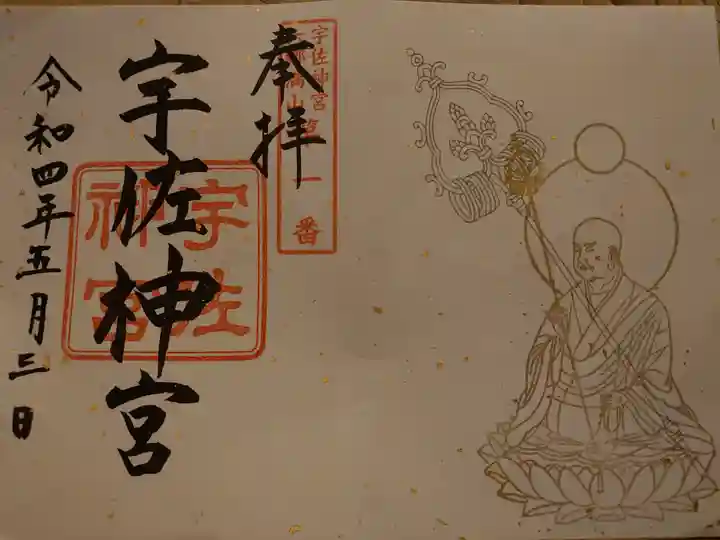 奉拝
宇佐神宮
令和四年五月三日
宇佐神宮
一番
宇佐
神宮